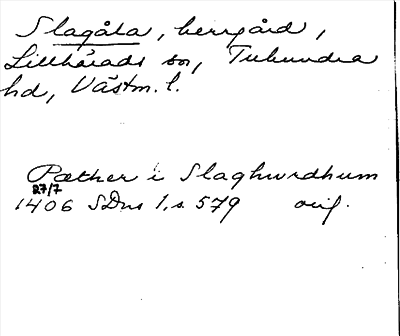 Slagåla, herrgård,
Lillhärads sn, Tuhundra
hd, Västm. l.
Pæther i Slaghurdhum
27/7
1406 SDns 1, s. 579 orig.